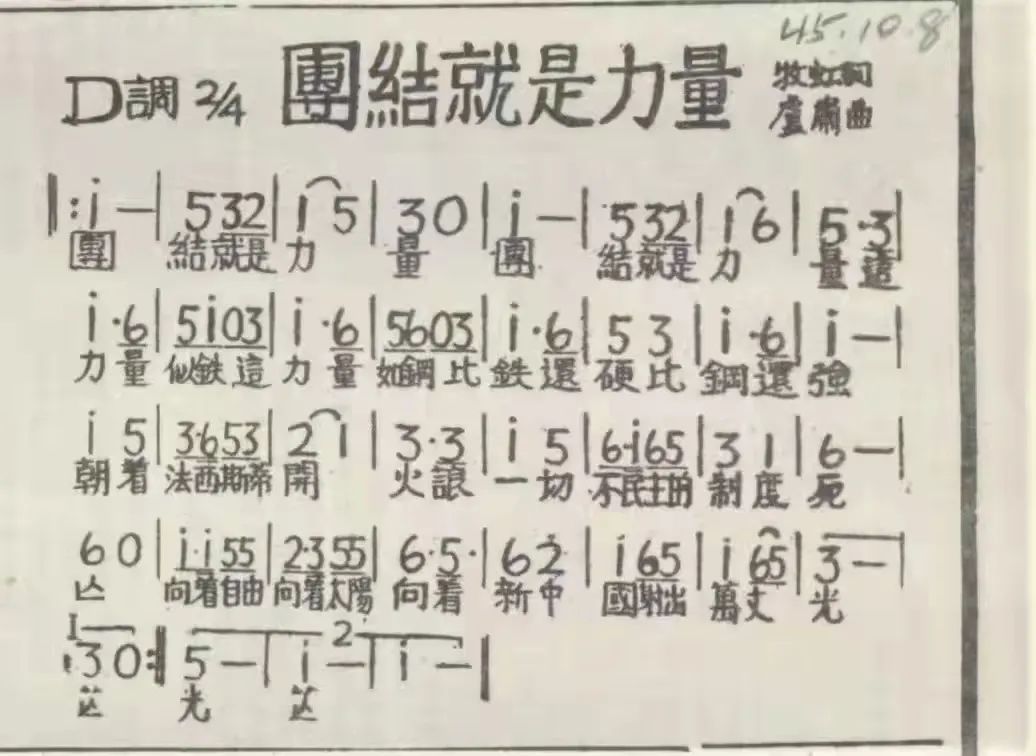 45.10.8
D調 2/4 團結就是力量 牧虹詞
盧肅曲
‖:i — | 5 32 | 1 5 | 3 0 | i — | 5 32 | 1 6 | 5 ·3 |
團 結就是 力 量 團 結就是 力 量 這
i ·6 | 5i03 | i ·6 | 5603 | i ·6 | 5 3 | i ·6 | i — |
力 量 似鉄 這 力 量 如鋼 比 鉄 還 硬 比 鋼 還 強
i 5 | 3·653 | 2 1 | 3·3 | i 5 | 6·i65 | 3 1 | 6 — |
朝 着 法西斯蒂 開 火 讓 一 切 不民主的 制 度 死
6 0 | i·i 55 | 2·3 55 | 6·5· | 6 2 | i 65 | i 65 | 3 — |
亾 向着自由 向着太陽 向 着 新 中 國 射出 萬 丈 光
I 2
:3 0:‖ 5 — | i — | i — |
芒 光 芒